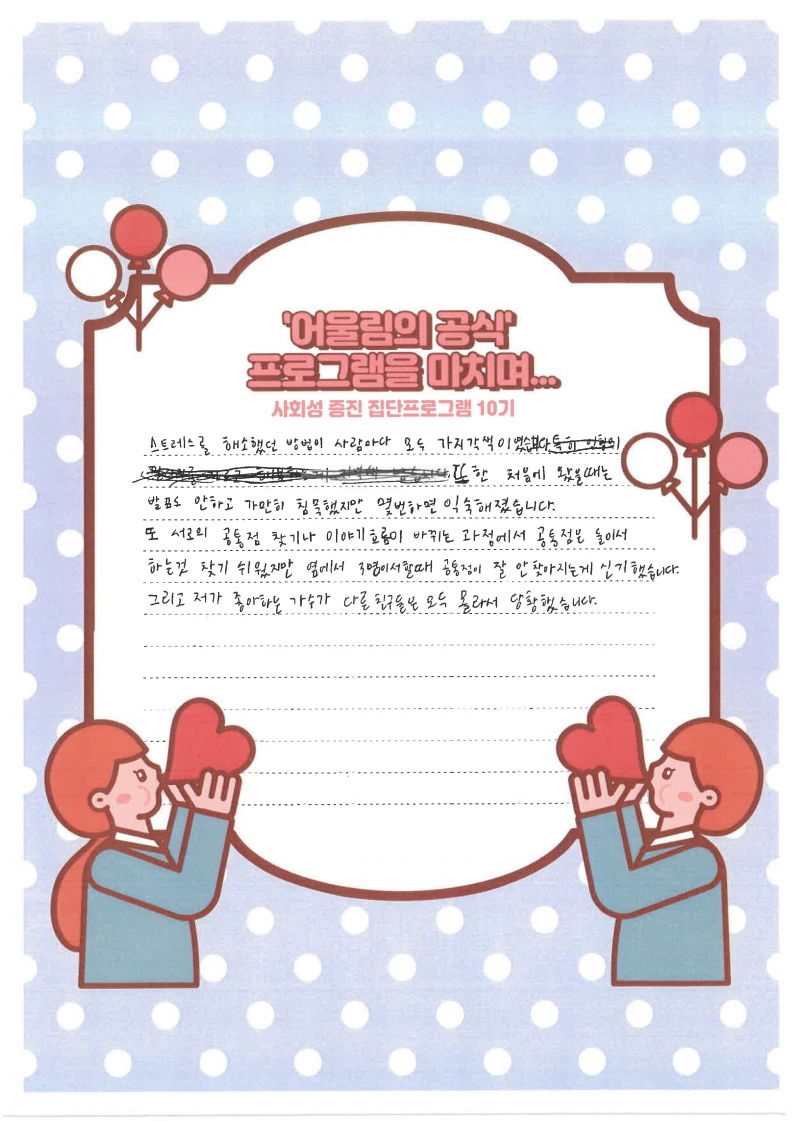 '어울림의 공식'
프로그램을 마치며...
사회성 증진 집단프로그램 10기
스트레스를 해소했던 방법이 사람마다 모두 가지각색이였습니다.
또한 처음에 왔을때는
발표도 안하고 가만히 침묵했지만 몇번하면 익숙해졌습니다.
또 서로의 공통점 찾기나 이야기흐름이 바뀌는 과정에서 공통점은 둘이서
하는것 찾기 쉬웠지만 옆에서 3명이서할때 공통점이 잘 안찾아지는게 신기했습니다.
그리고 저가 좋아하는 가수가 다른친구들은 모두 몰라서 당황했습니다.